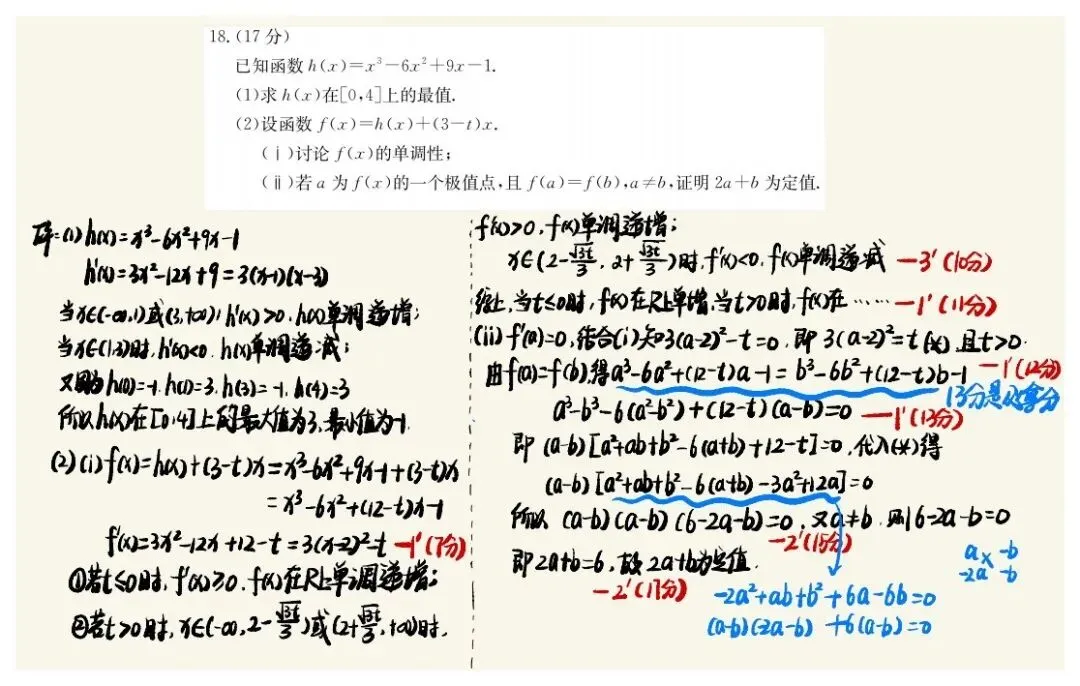 18.(17分)
已知函数h(x)=x³-6x²+9x-1.
(1)求h(x)在[0,4]上的最值.
(2)设函数f(x)=h(x)+(3-t)x.
(ⅰ)讨论f(x)的单调性;
(ⅱ)若a为f(x)的一个极值点,且f(a)=f(b),a≠b,证明2a+b为定值.
解:(1)h(x)=x³-6x²+9x-1
h'(x)=3x²-12x+9=3(x-1)(x-3)
当x∈(-∞,1)或(3,+∞),h'(x)>0,h(x)单调递增;
当x∈(1,3)时,h'(x)<0,h(x)单调递减;
又因为h(0)=-1,h(1)=3,h(3)=-1,h(4)=3
所以h(x)在[0,4]上的最大值为3,最小值为-1.
(2)(i)f(x)=h(x)+(3-t)x=x³-6x²+9x-1+(3-t)x
=x³-6x²+(12-t)x-1
f'(x)=3x²-12x+12-t=3(x-2)²-t —1'(7分)
①若t≤0时,f'(x)≥0,f(x)在R上单调递增;
②若t>0时,x∈(-∞,2-√3t/3)或(2+√3t/3,+∞)时,
f'(x)>0,f(x)单调递增;
x∈(2-√3t/3,2+√3t/3)时,f'(x)<0,f(x)单调递减 —3'(10分)
综上,当t≤0时,f(x)在R上单增,当t>0时,f(x)在…… —1'(11分)
(ii)f'(a)=0,结合(i)知3(a-2)²-t=0,即3(a-2)²=t(*),且t>0.
由f(a)=f(b),得a³-6a²+(12-t)a-1=b³-6b²+(12-t)b-1 —1'(12分)
13分是及拿分
a³-b³-6(a²-b²)+(12-t)(a-b)=0 —1'(13分)
即(a-b)[a²+ab+b²-6(a+b)+12-t]=0,代入(*)得
(a-b)[a²+ab+b²-6(a+b)-3a²+12a]=0
所以(a-b)(a-b)(6-2a-b)=0,又a≠b,则6-2a-b=0
—2'(15分)
即2a+b=6,故2a+b为定值.
—2'(17分)
a -b
-2a -b
-2a²+ab+b²+6a-6b=0
(a-b)(-2a-b)+6(a-b)=0